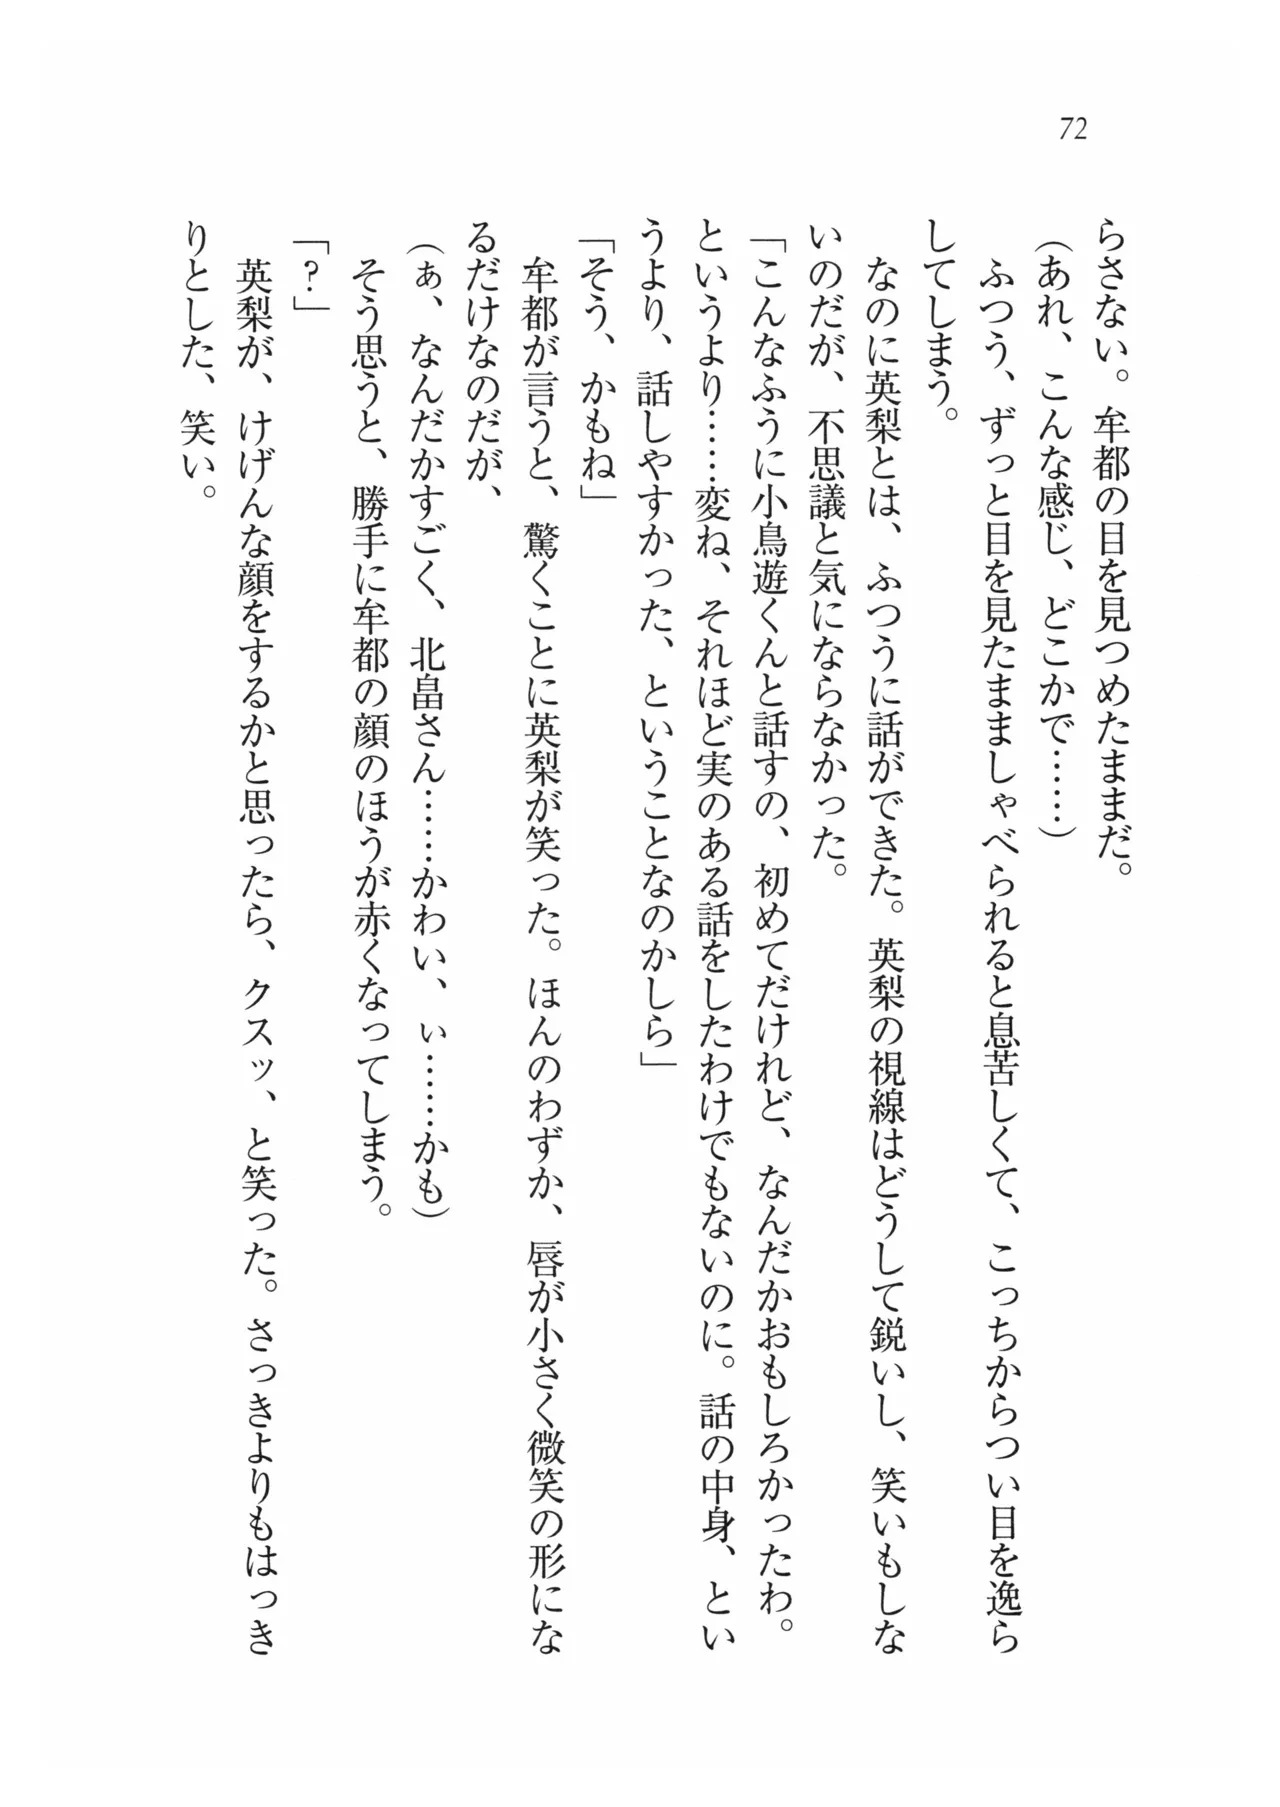 72
らさない。牟都の目を見つめたままだ。
（あれ、こんな感じ、どこかで……）
ふつう、ずっと目を見たまましゃべられると息苦しくて、こっちからつい目を逸ら
してしまう。
なのに英梨とは、ふつうに話ができた。英梨の視線はどうして鋭いし、笑いもしな
いのだが、不思議と気にならなかった。
「こんなふうに小鳥遊くんと話すの、初めてだけれど、なんだかおもしろかったわ。
というより……変ね、それほど実のある話をしたわけでもないのに。話の中身、とい
うより、話しやすかった、ということなのかしら」
「そう、かもね」
牟都が言うと、驚くことに英梨が笑った。ほんのわずか、唇が小さく微笑の形にな
るだけなのだが、
（ぁ、なんだかすごく、北畠さん……かわい、ぃ……かも）
そう思うと、勝手に牟都の顔のほうが赤くなってしまう。
「？」
英梨が、けげんな顔をするかと思ったら、クスッ、と笑った。さっきよりもはっき
りとした、笑い。